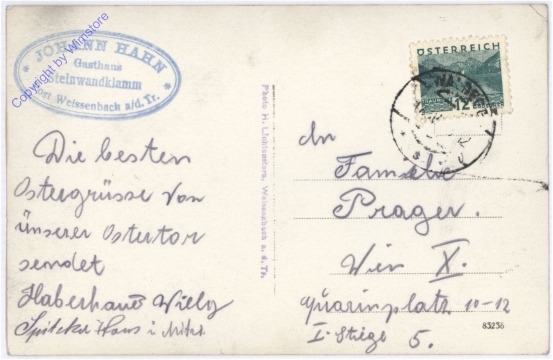 JOHANN HAHN
Gasthaus
Steinwandklamm
Post Weissenbach a/d. Tr.
Copyright by Wimstore
ÖSTERREICH
12
Die besten
Ostergrüsse von
unserer Ostertor
sendet
Haberhaus Willy
Spitzka Hans
Photo H. Lichtenstern, Weissenbach a. d. Tr.
An
Familie
Prager.
Wien X.
Quarinplatz 10-12
I. Stiege 5.
83236